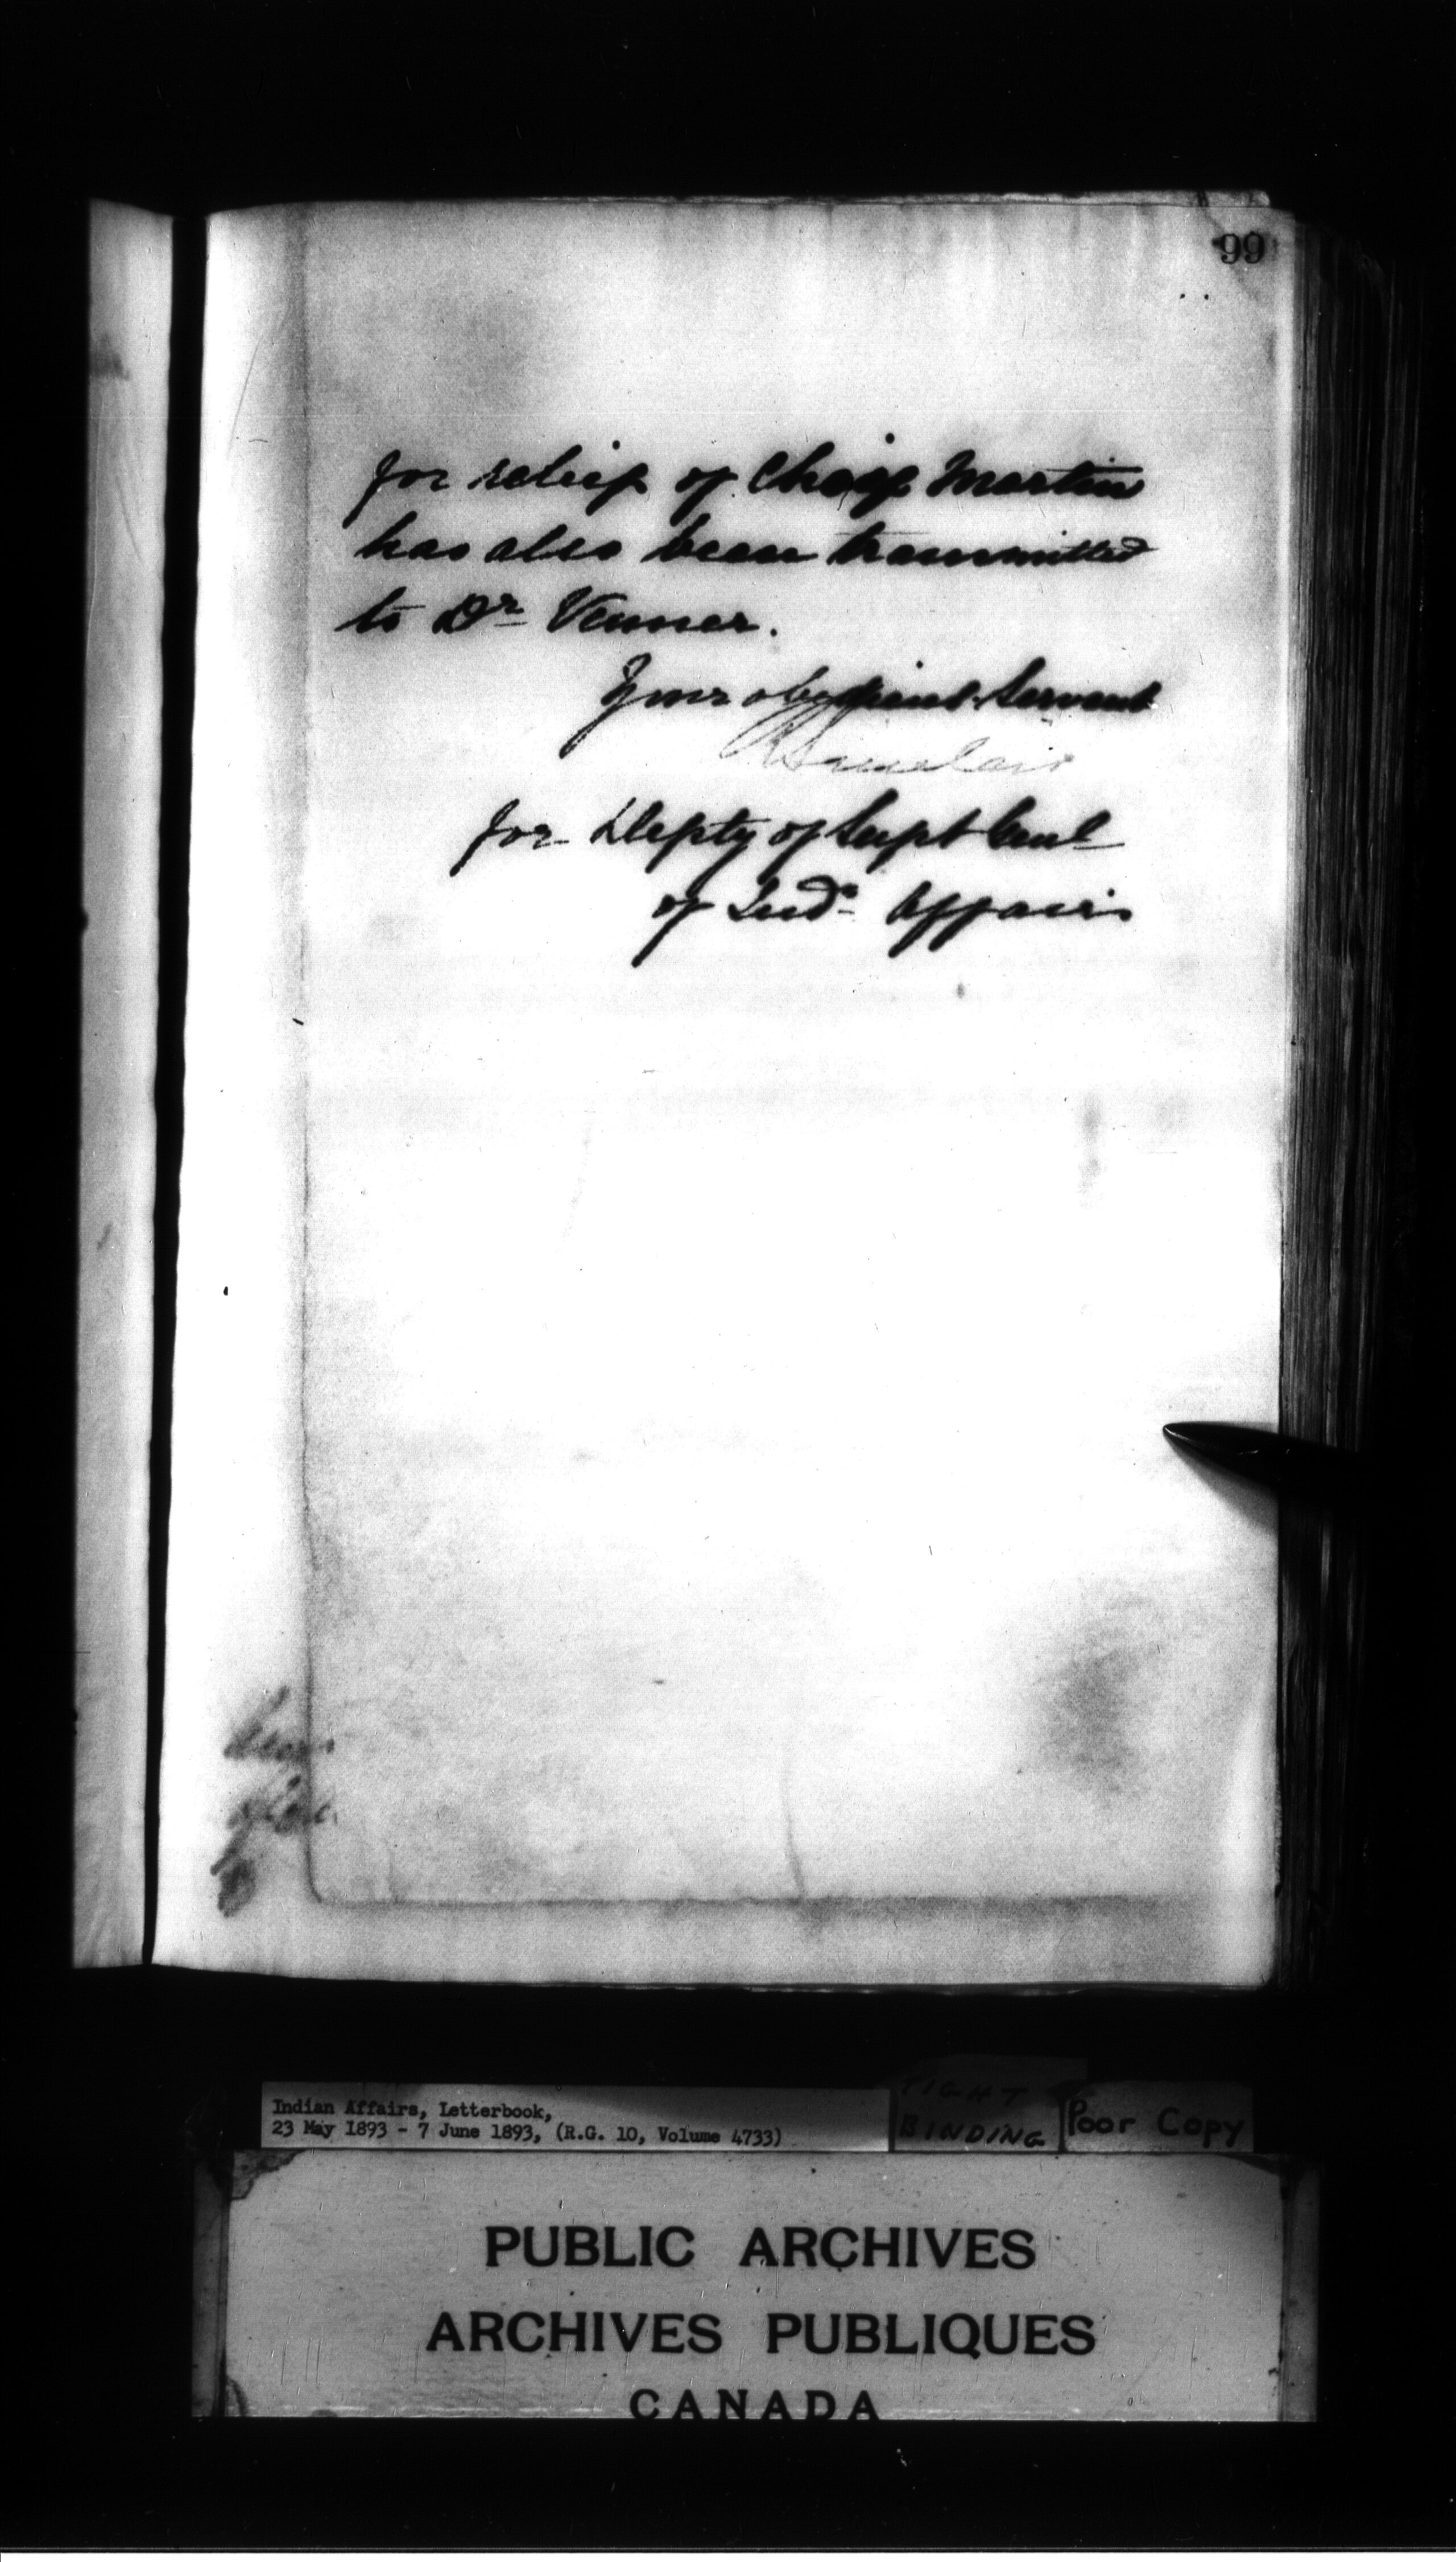 99
for relief of Chief Martin
has also been transmitted
to Dr Venner.
Your obedient Servant
R Sinclair
for Depty of Supt Genl
of Indn Affairs
Indian Affairs, Letterbook,
23 May 1893 - 7 June 1893, (R.G. 10, Volume 4733)
TIGHT
BINDING
Poor Copy
PUBLIC ARCHIVES
ARCHIVES PUBLIQUES
CANADA